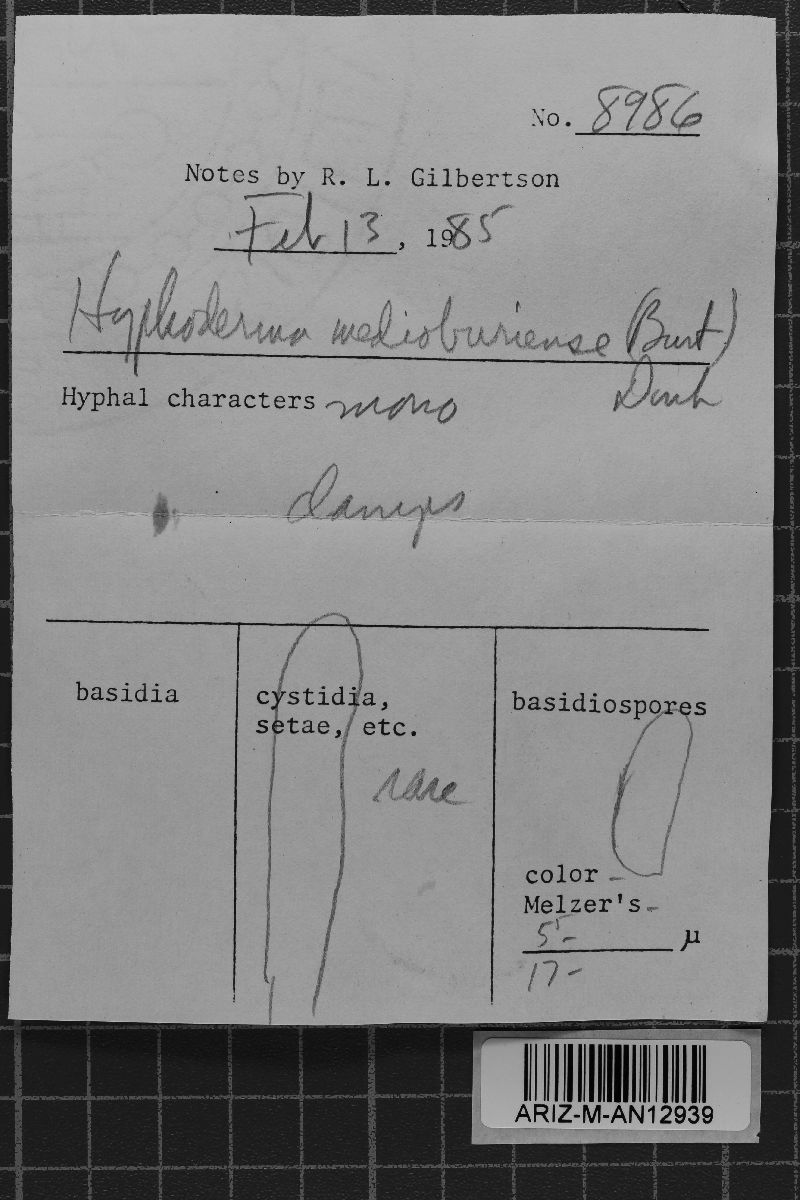 No. 8986
Notes by R. L. Gilbertson
Feb 13, 1985
Hyphoderma medioburiense (Burt)
Donk
Hyphal characters mono
clamps
basidia
cystidia,
setae, etc.
rare
basidiospores
color -
Melzer's -
5- µ
17-
ARIZ-M-AN12939